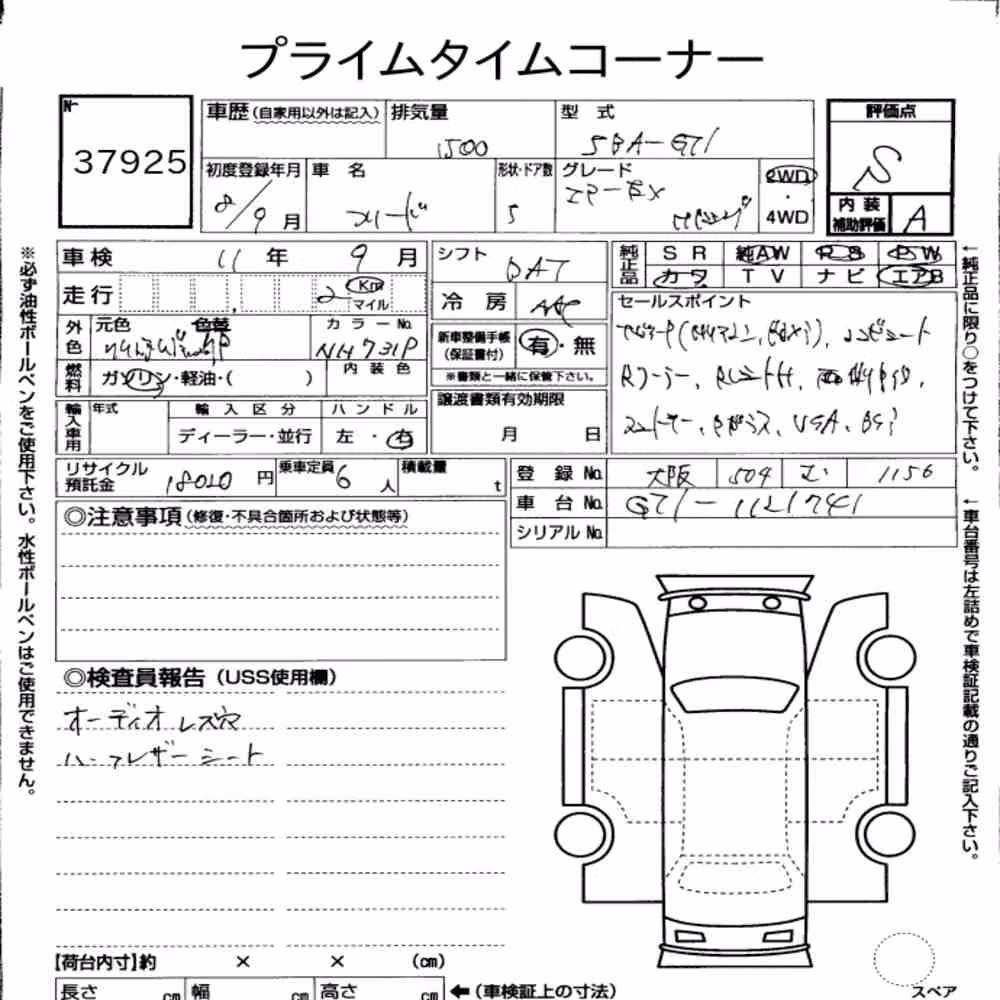 プライムタイムコーナー
No. 37925
車歴(自家用以外は記入) 排気量 1500
型式 DBA-GT1
評価点 S
内装補助評価 A
初度登録年月 8/9月
車名 フリード
形状・ドア数 5
グレード
2WD・4WD
車検 11年 9月
走行 2 Km マイル
シフト DAT
冷房 AAC
純正品 SR 純AW PS PW
カワ TV ナビ エアB
外色 元色 色替
カラーNo. NH731P
燃料 ガソリン・軽油・( )
内装色
新車整備手帳(保証書付) 有・無
※書類と一緒に保管下さい。
セールスポイント
輸入車用 年式 輸入区分 ハンドル
ディーラー・並行 左・右
譲渡書類有効期限
月 日
リサイクル預託金 18020円
乗車定員 6人
積載量 t
登録No. 大阪 504 む 1156
車台No.
シリアルNo.
◎注意事項(修復・不具合箇所および状態等)
◎検査員報告(USS使用欄)
オーディオレス穴
ハーフレザーシート
【荷台内寸】約 × × (cm)
長さ cm 幅 cm 高さ cm
←(車検証上の寸法)
スペア
※必ず油性ボールペンをご使用下さい。水性ボールペンはご使用できません。
←純正品に限り○をつけて下さい。
←車台番号は左詰めで車検証記載の通りご記入下さい。